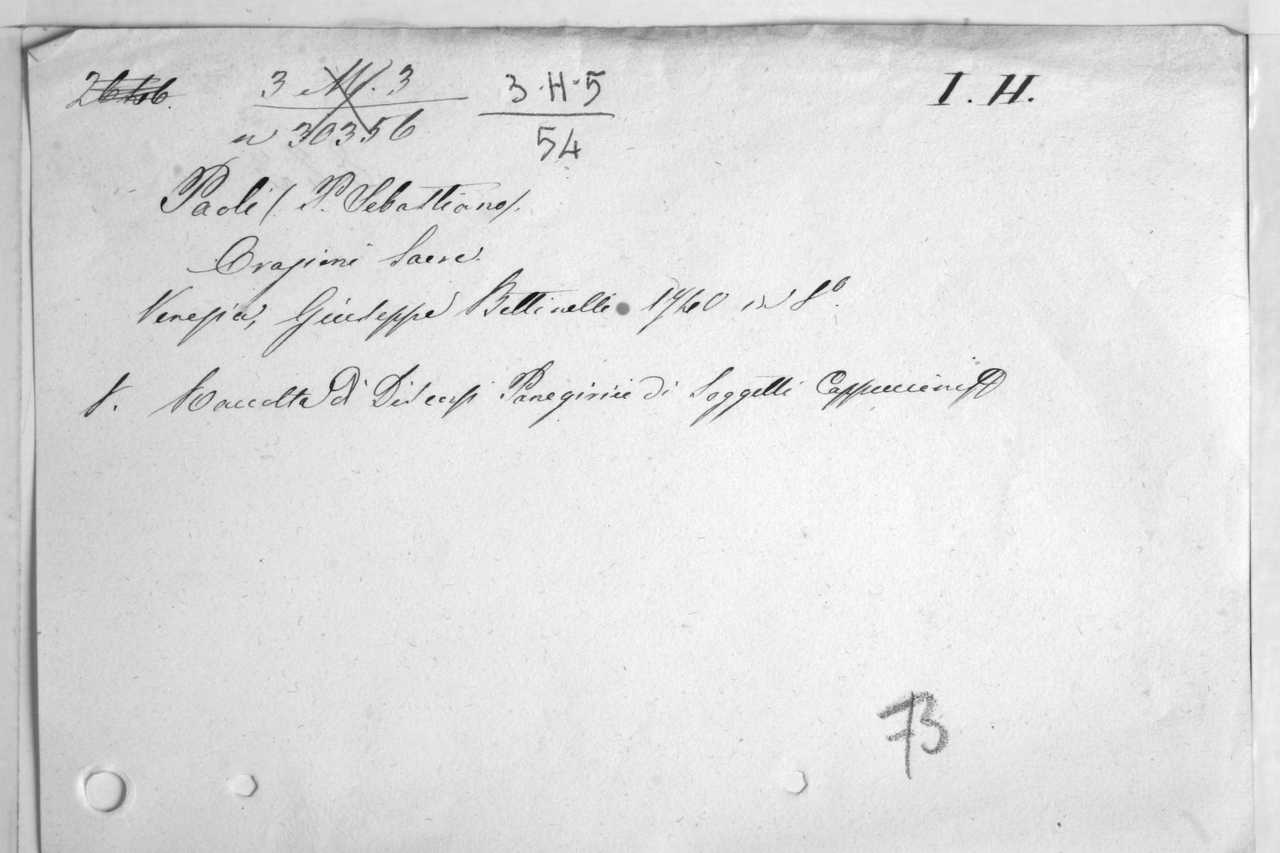 3 M. 3 3·H·5 I. H.
n 30356 54
Paoli (P. Sebastiano).
Orazioni Sacre.
Venezia, Giuseppe Bettinelli 1740 in 8º.
V. Raccolta di Discorsi Panegirici di Soggetti Cappuccini
73